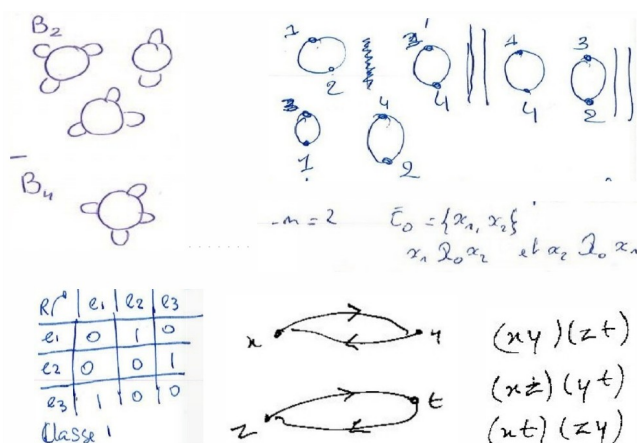 B2
1 2
4
1 4
3 2
1
4 2
B4
-n = 2 C0 = {x1, x2}
x1 R0 x2 et x2 R0 x1
R/ e1 e2 e3
e1 0 1 0
e2 0 0 1
e3 1 0 0
Classe 1
x y
z t
(xy)(zt)
(xz)(yt)
(xt)(zy)